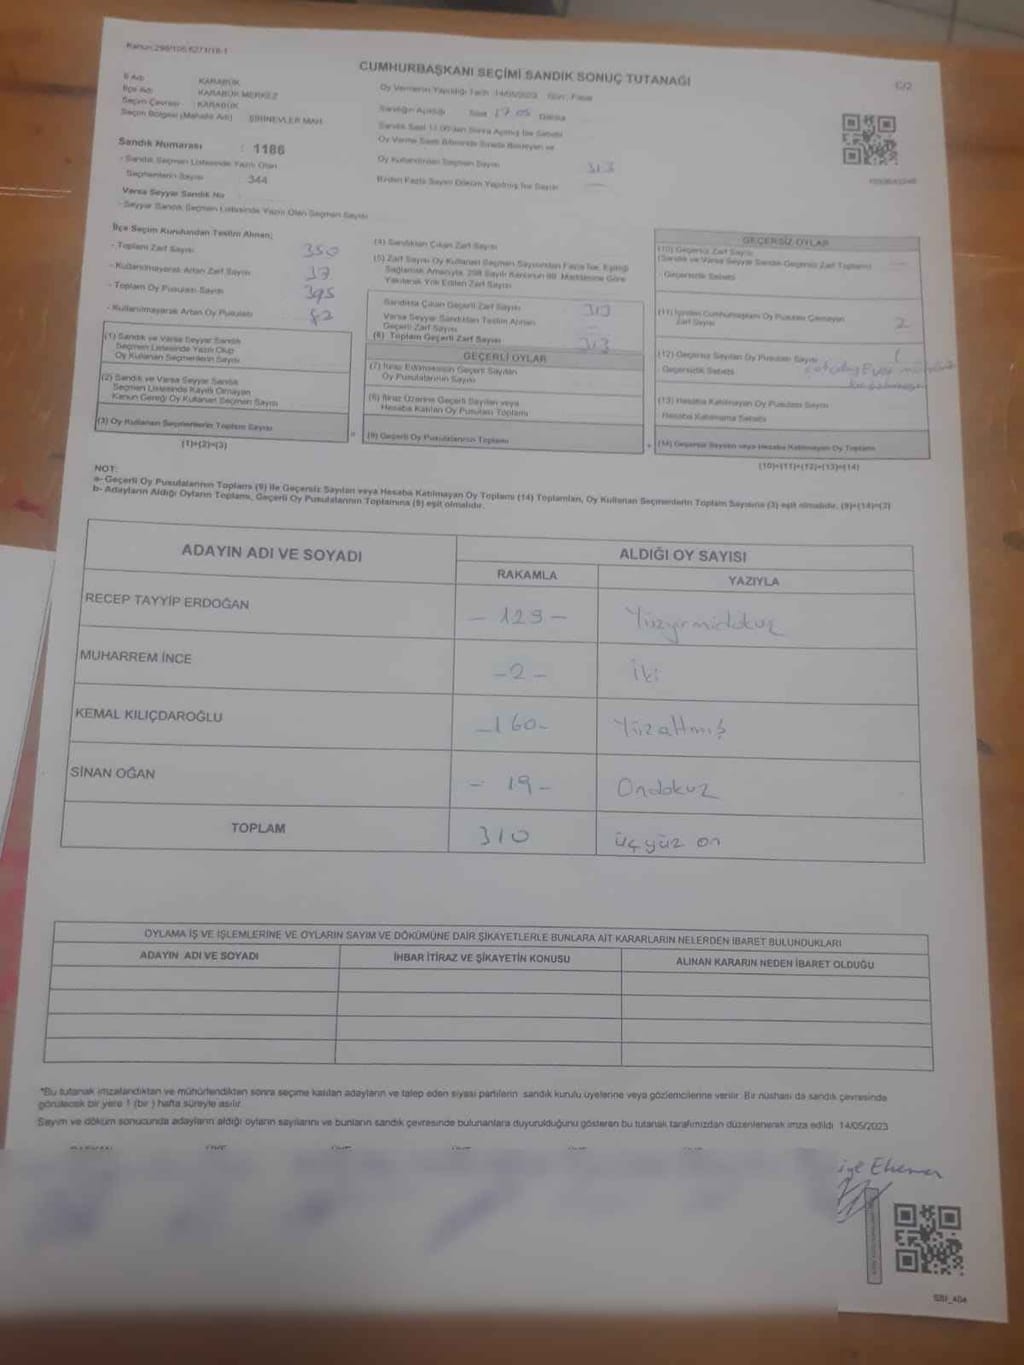 Kanun:298/105 6271/18-1
CUMHURBAŞKANI SEÇİMİ SANDIK SONUÇ TUTANAĞI
İl Adı KARABÜK
İlçe Adı KARABÜK MERKEZ
Seçim Çevresi KARABÜK
Seçim Bölgesi (Mahalle Adı) ŞİRİNEVLER MAH.
Sandık Numarası : 1186
- Sandık Seçmen Listesinde Yazılı Olan
Seçmenlerin Sayısı 344
Varsa Seyyar Sandık No
- Seyyar Sandık Seçmen Listesinde Yazılı Olan Seçmen Sayısı
Oy Vermenin Yapıldığı Tarih 14/05/2023 Gün: Pazar
Sandığın Açıldığı Saat 17.05 Dakika
Sandık Saat 17.00'dan Sonra Açılmış İse Sebebi
Oy Kullandırılan Seçmen Sayısı 313
Birden Fazla Sayım Döküm Yapılmış İse Sayısı —
İlçe Seçim Kurulundan Teslim Alınan;
- Toplam Zarf Sayısı 350
- Kullanılmayarak Artan Zarf Sayısı 37
- Toplam Oy Pusulası Sayısı 395
- Kullanılmayarak Artan Oy Pusulası 82
(1) Sandık ve Varsa Seyyar Sandık
Seçmen Listesinde Yazılı Olup
Oy Kullanan Seçmenlerin Sayısı
(2) Sandık ve Varsa Seyyar Sandık
Seçmen Listesinde Kayıtlı Olmayan
Kanun Gereği Oy Kullanan Seçmen Sayısı
(3) Oy Kullanan Seçmenlerin Toplam Sayısı
(1)+(2)=(3)
(4) Sandıktan Çıkan Zarf Sayısı
(5) Zarf Sayısı Oy Kullanan Seçmen Sayısından Fazla İse, Eşitliği
Sağlamak Amacıyla, 298 Sayılı Kanunun 98. Maddesine Göre
Yakılarak Yok Edilen Zarf Sayısı
Sandıkta Çıkan Geçerli Zarf Sayısı 313
Varsa Seyyar Sandıktan Teslim Alınan
Geçerli Zarf Sayısı —
(6) Toplam Geçerli Zarf Sayısı 313
GEÇERLİ OYLAR
(7) İtiraz Edilmeksizin Geçerli Sayılan
Oy Pusulalarının Sayısı
(8) İtiraz Üzerine Geçerli Sayılan veya
Hesaba Katılan Oy Pusulası Toplamı
(9) Geçerli Oy Pusulalarının Toplamı
GEÇERSİZ OYLAR
(10) Geçersiz Zarf Sayısı
(Sandık ve Varsa Seyyar Sandık Geçersiz Zarf Toplamı)
- Geçersizlik Sebebi
(11) İçinden Cumhurbaşkanı Oy Pusulası Çıkmayan
Zarf Sayısı 2
(12) Geçersiz Sayılan Oy Pusulası Sayısı 1
- Geçersizlik Sebebi
(13) Hesaba Katılmayan Oy Pusulası Sayısı
- Hesaba Katılmama Sebebi
(14) Geçersiz Sayılan veya Hesaba Katılmayan Oy Toplamı
(10)+(11)+(12)+(13)=(14)
NOT:
a- Geçerli Oy Pusulalarının Toplamı (9) ile Geçersiz Sayılan veya Hesaba Katılmayan Oy Toplamı (14) Toplamları, Oy Kullanan Seçmenlerin Toplam Sayısına (3) eşit olmalıdır. (9)+(14)=(3)
b- Adayların Aldığı Oyların Toplamı, Geçerli Oy Pusulalarının Toplamına (9) eşit olmalıdır.
ADAYIN ADI VE SOYADI ALDIĞI OY SAYISI
RAKAMLA YAZIYLA
RECEP TAYYİP ERDOĞAN - 129 - Yüzyirmidokuz
MUHARREM İNCE - 2 - İki
KEMAL KILIÇDAROĞLU - 160 - Yüzaltmış
SİNAN OĞAN - 19 - Ondokuz
TOPLAM 310 üçyüz on
OYLAMA İŞ VE İŞLEMLERİNE VE OYLARIN SAYIM VE DÖKÜMÜNE DAİR ŞİKAYETLERLE BUNLARA AİT KARARLARIN NELERDEN İBARET BULUNDUKLARI
ADAYIN ADI VE SOYADI İHBAR İTİRAZ VE ŞİKAYETİN KONUSU ALINAN KARARIN NEDEN İBARET OLDUĞU
*Bu tutanak imzalandıktan ve mühürlendikten sonra seçime katılan adayların ve talep eden siyasi partilerin sandık kurulu üyelerine veya gözlemcilerine verilir. Bir nüshası da sandık çevresinde
görülecek bir yere 1 (bir) hafta süreyle asılır.
Sayım ve döküm sonucunda adayların aldığı oyların sayılarını ve bunların sandık çevresinde bulunanlara duyurulduğunu gösteren bu tutanak tarafımızdan düzenlenerek imza edildi. 14/05/2023